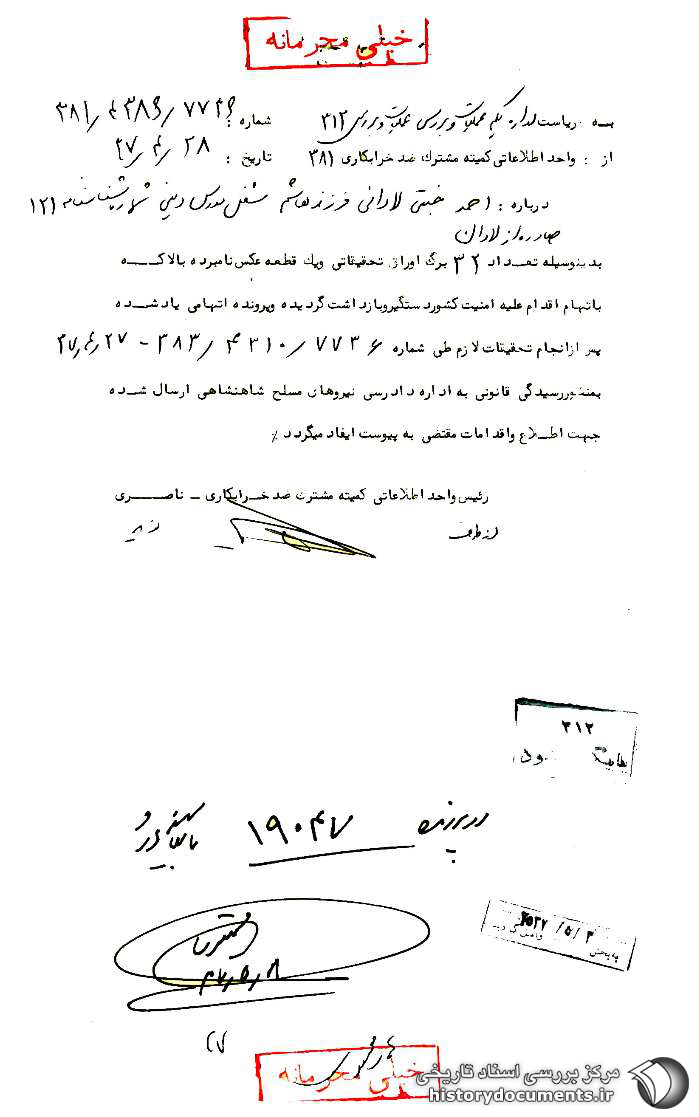 خیلی محرمانه
به ریاست اداره یکم عملیات و بررسی ۳۱۲ شماره : ۳۸۱/
از : واحد اطلاعاتی کمیته مشترك ضد خرابکاری ۳۸۱ تاریخ : ۲۸ / ۴ / ۳۷
درباره : احمد لادانی فرزند هاشم شغل مدرس دینی شماره شناسنامه ۱۲۱
صادره از لادان
بدینوسیله تعداد ۳۲ برگ اوراق تحقیقاتی ویك قطعه عکس نامبرده بالا که
باتهام اقدام علیه امنیت کشور دستگیر و بازداشت گردیده و پرونده اتهامی یاد شده
پس از انجام تحقیقات لازم طی شماره ۷۷۳۶ / ۴۳۱۰ / ۳۸۳ - ۲۷ /۴/ ۳۷
بمنظور رسیدگی قانونی به اداره دادرسی نیروهای مسلح شاهنشاهی ارسال شده
جهت اطلاع و اقدامات مقتضی به پیوست ایفاد میگردد ٪
رئیس واحد اطلاعاتی کمیته مشترك ضد خرابکاری - ناصری
از طرف
۳۱۲
در پرونده ۱۹۰۴۷
۲۵۳۷ /۵/ ۲
خیلی محرمانه
مرکز بررسی اسناد تاریخی
historydocuments.ir